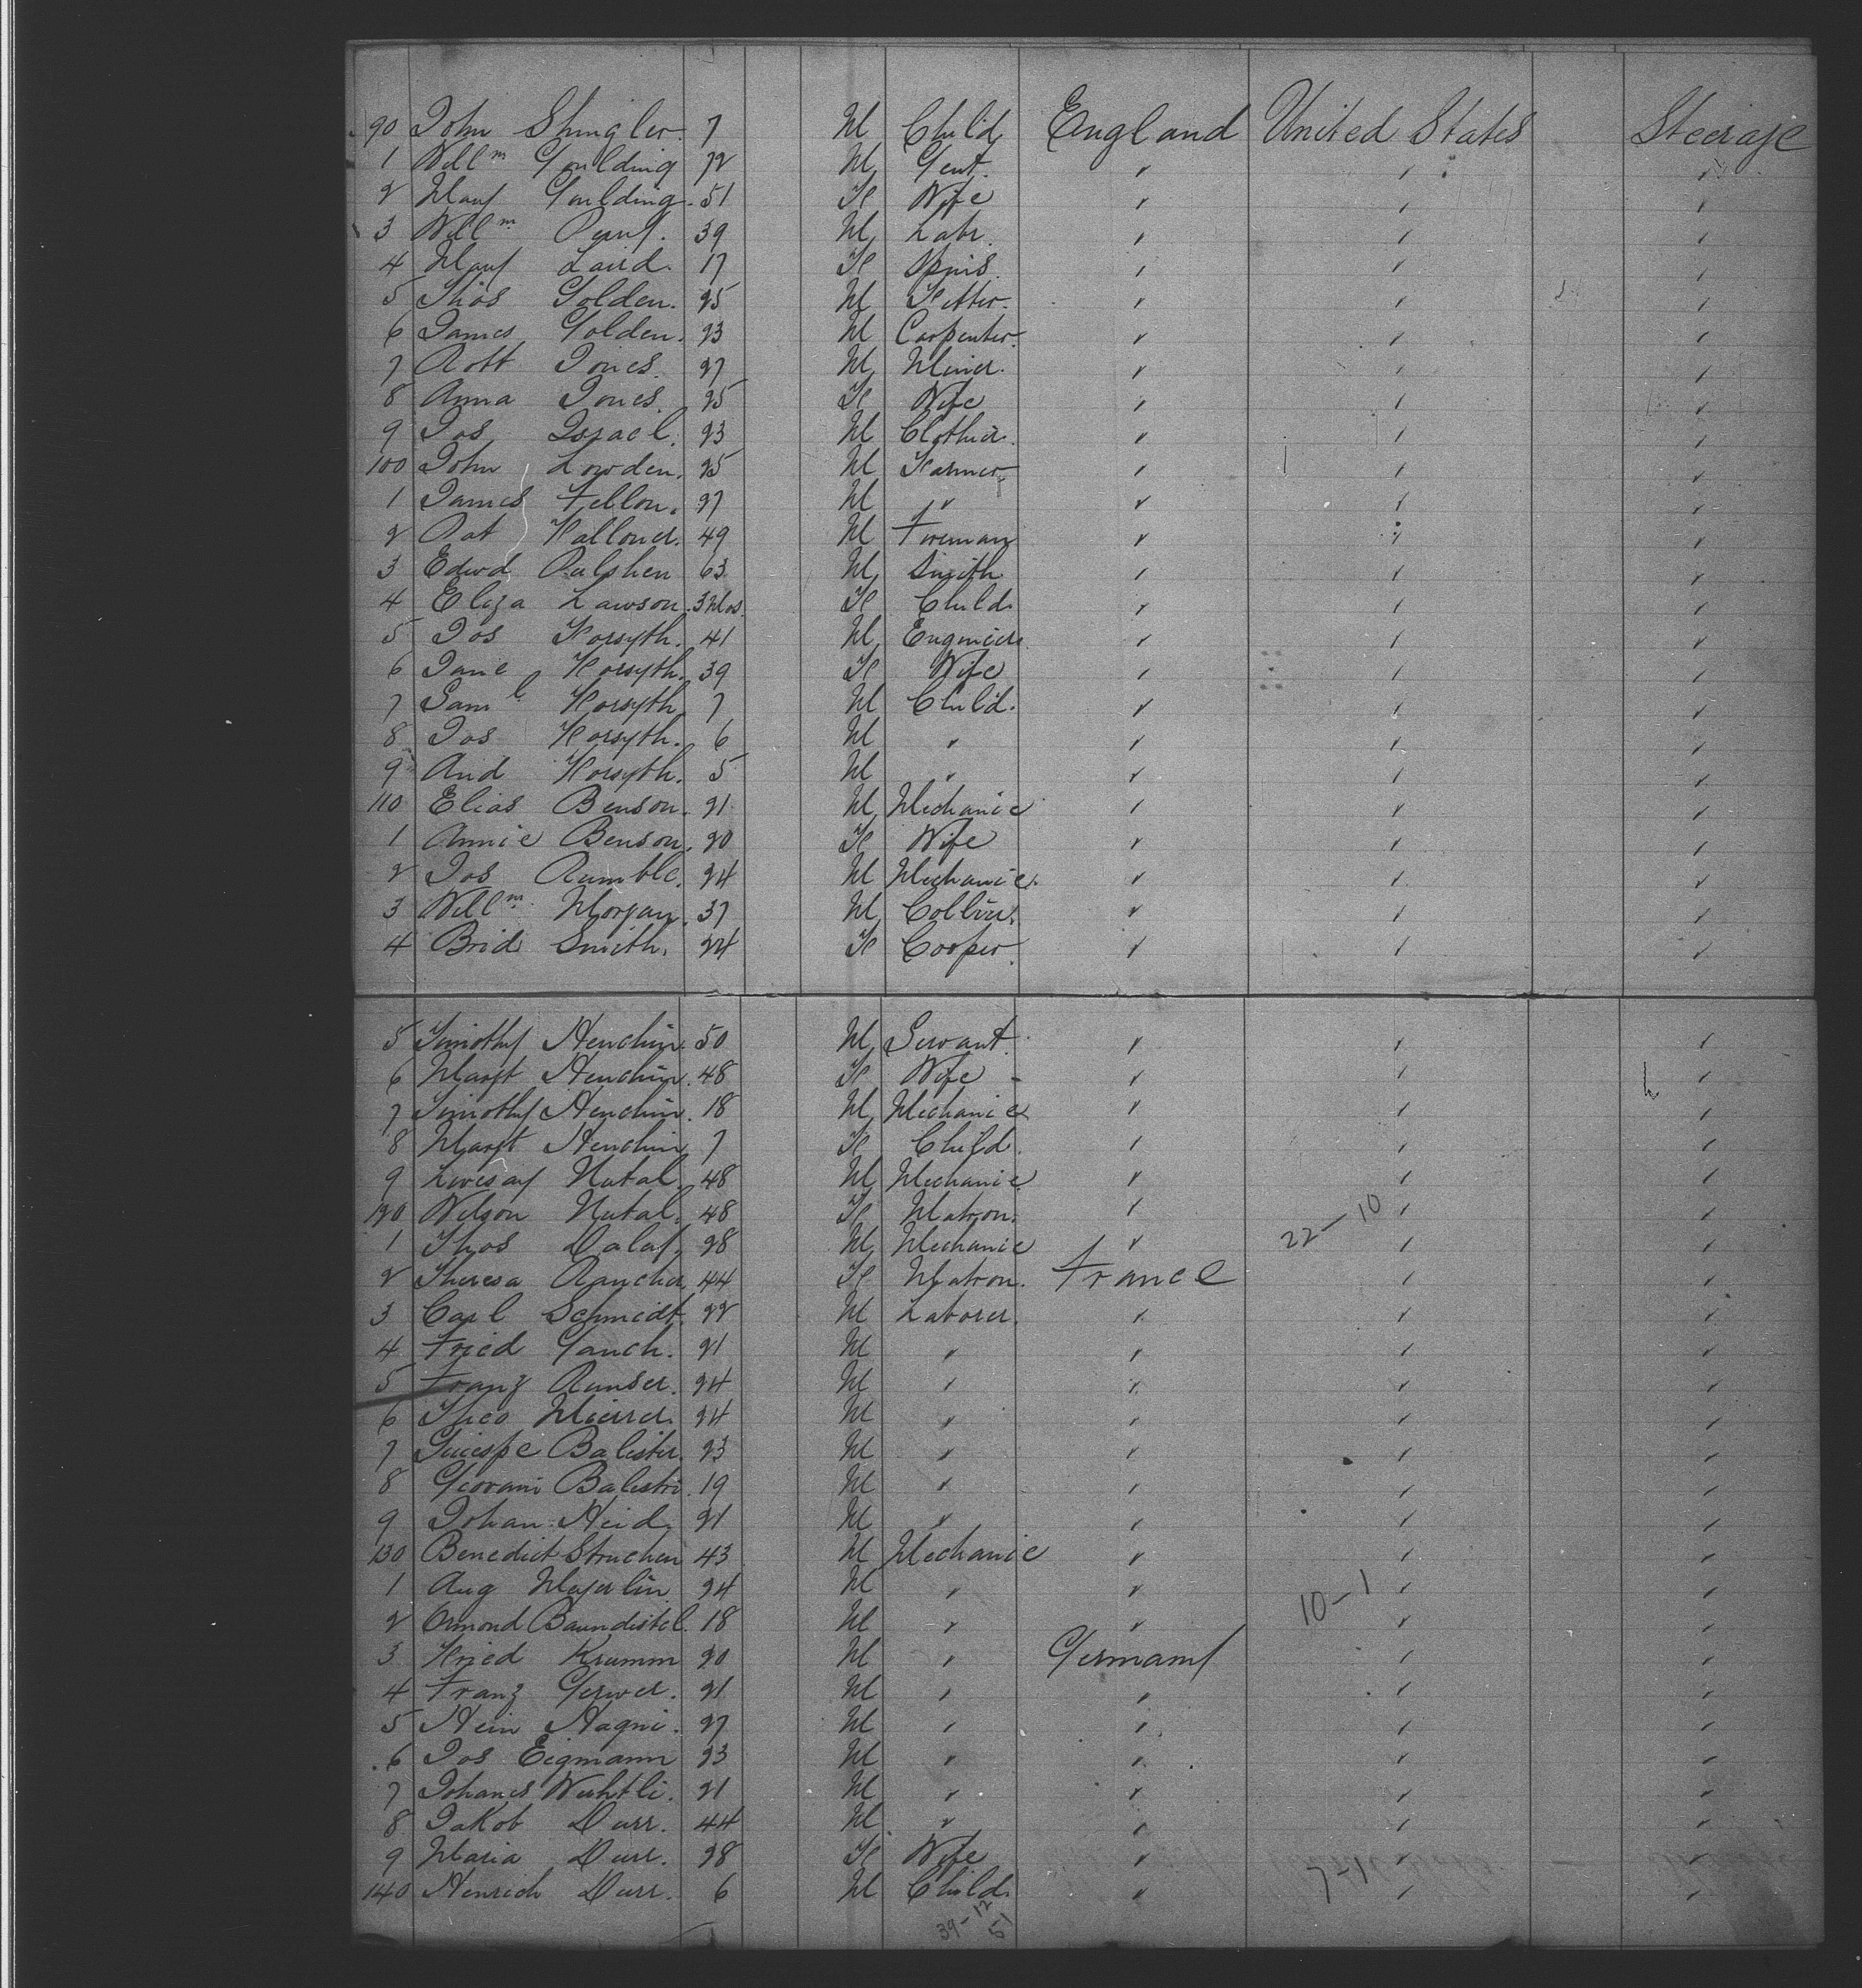 90 John Shingler. 7 M Child England United States Steerage
1 Willm Goulding 72 M Gent. " " "
2 Mary Goulding. 51 F Wife " " "
3 Willm 39 M Labr. " " "
4 Mary Laird. 17 F Spins. " " "
5 Thos Golden. 25 M Fitter. " " "
6 James Golden. 23 M Carpenter. " " "
7 Robt Jones. 27 M Miner. " " "
8 Anna Jones. 25 F Wife " " "
9 Jos Israel. 23 M Clothier. " " "
100 John Lowden. 25 M Farmer " " "
1 James Fellon. 27 M " " " "
2 Pat 49 M Foreman " " "
3 Edwd 63 M Smith " " "
4 Eliza Lawson. 3 Mos. F Child " " "
5 Jos Forsyth. 41 M Engineer " " "
6 Jane Forsyth. 39 F Wife " " "
7 Saml Forsyth 7 M Child. " " "
8 Jos Forsyth. 6 M " " " "
9 And Forsyth. 5 M " " " "
110 Elias Benson. 21 M Mechanic " " "
1 Annie Benson. 20 F Wife " " "
2 Jos Rumble. 24 M Mechanic " " "
3 Willm Morgan. 37 M Collier. " " "
4 Brid Smith. 24 F Cooper. " " "
5 Timothy Henchin. 50 M Servant. " " "
6 Margt Henchin. 48 F Wife - " " "
7 Timothy Henchin. 18 M Mechanic " " "
8 Margt Henchin 7 F Child. " " "
9 Livesay Nutal. 48 M Mechanic " " "
120 Wilson Nutal. 48 F Matron. " " "
22-10
1 Thos Dalay. 28 M Mechanic " " "
2 Theresa 44 F Matron. France " "
3 Carl Schmidt. 22 M Laborer. " " "
4 Fried Gauch. 21 M " " " "
5 Franz Runser. 24 M " " " "
6 Theo 24 M " " " "
7 Guiespe Balester. 23 M " " " "
8 Giovani Balestri. 19 M " " " "
9 Johan Heid. 21 M " " " "
130 Benedict Struchen 43 M Mechanic " " "
1 Aug 24 M " " " "
10-1
2 Omond Baundistel. 18 M " " " "
3 Fried Krumm 20 M " Germany " "
4 Franz Gerwer. 21 M " " " "
5 Hein Hagni. 27 M " " " "
6 Jos Eigmann 23 M " " " "
7 Johanes Wuhtli. 21 M " " " "
8 Jakob Durr. 44 M " " " "
9 Maria Durr. 28 F Wife " " "
7-1
140 Henrich Durr. 6 M Child. " " "
39-12
51